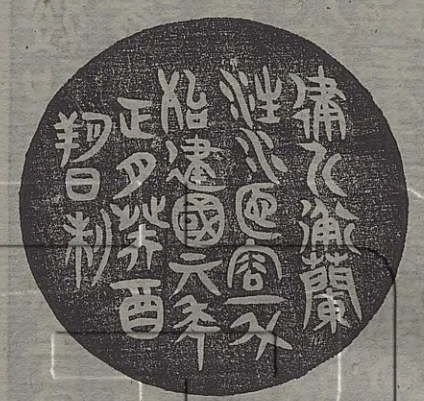 律人衡蘭
注水匜容一升
始建國元年
正月癸酉
朔日制